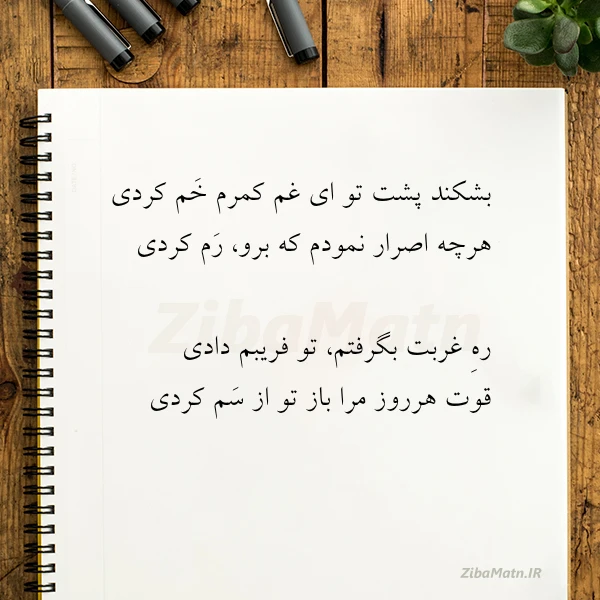 بشکند پشت تو ای غم کمرم خَم کردی
هرچه اصرار نمودم که برو، رَم کردی
ZibaMatn
رهِ غربت بگرفتم، تو فریبم دادی
قوت هرروز مرا باز تو از سَم کردی
ZibaMatn.IR